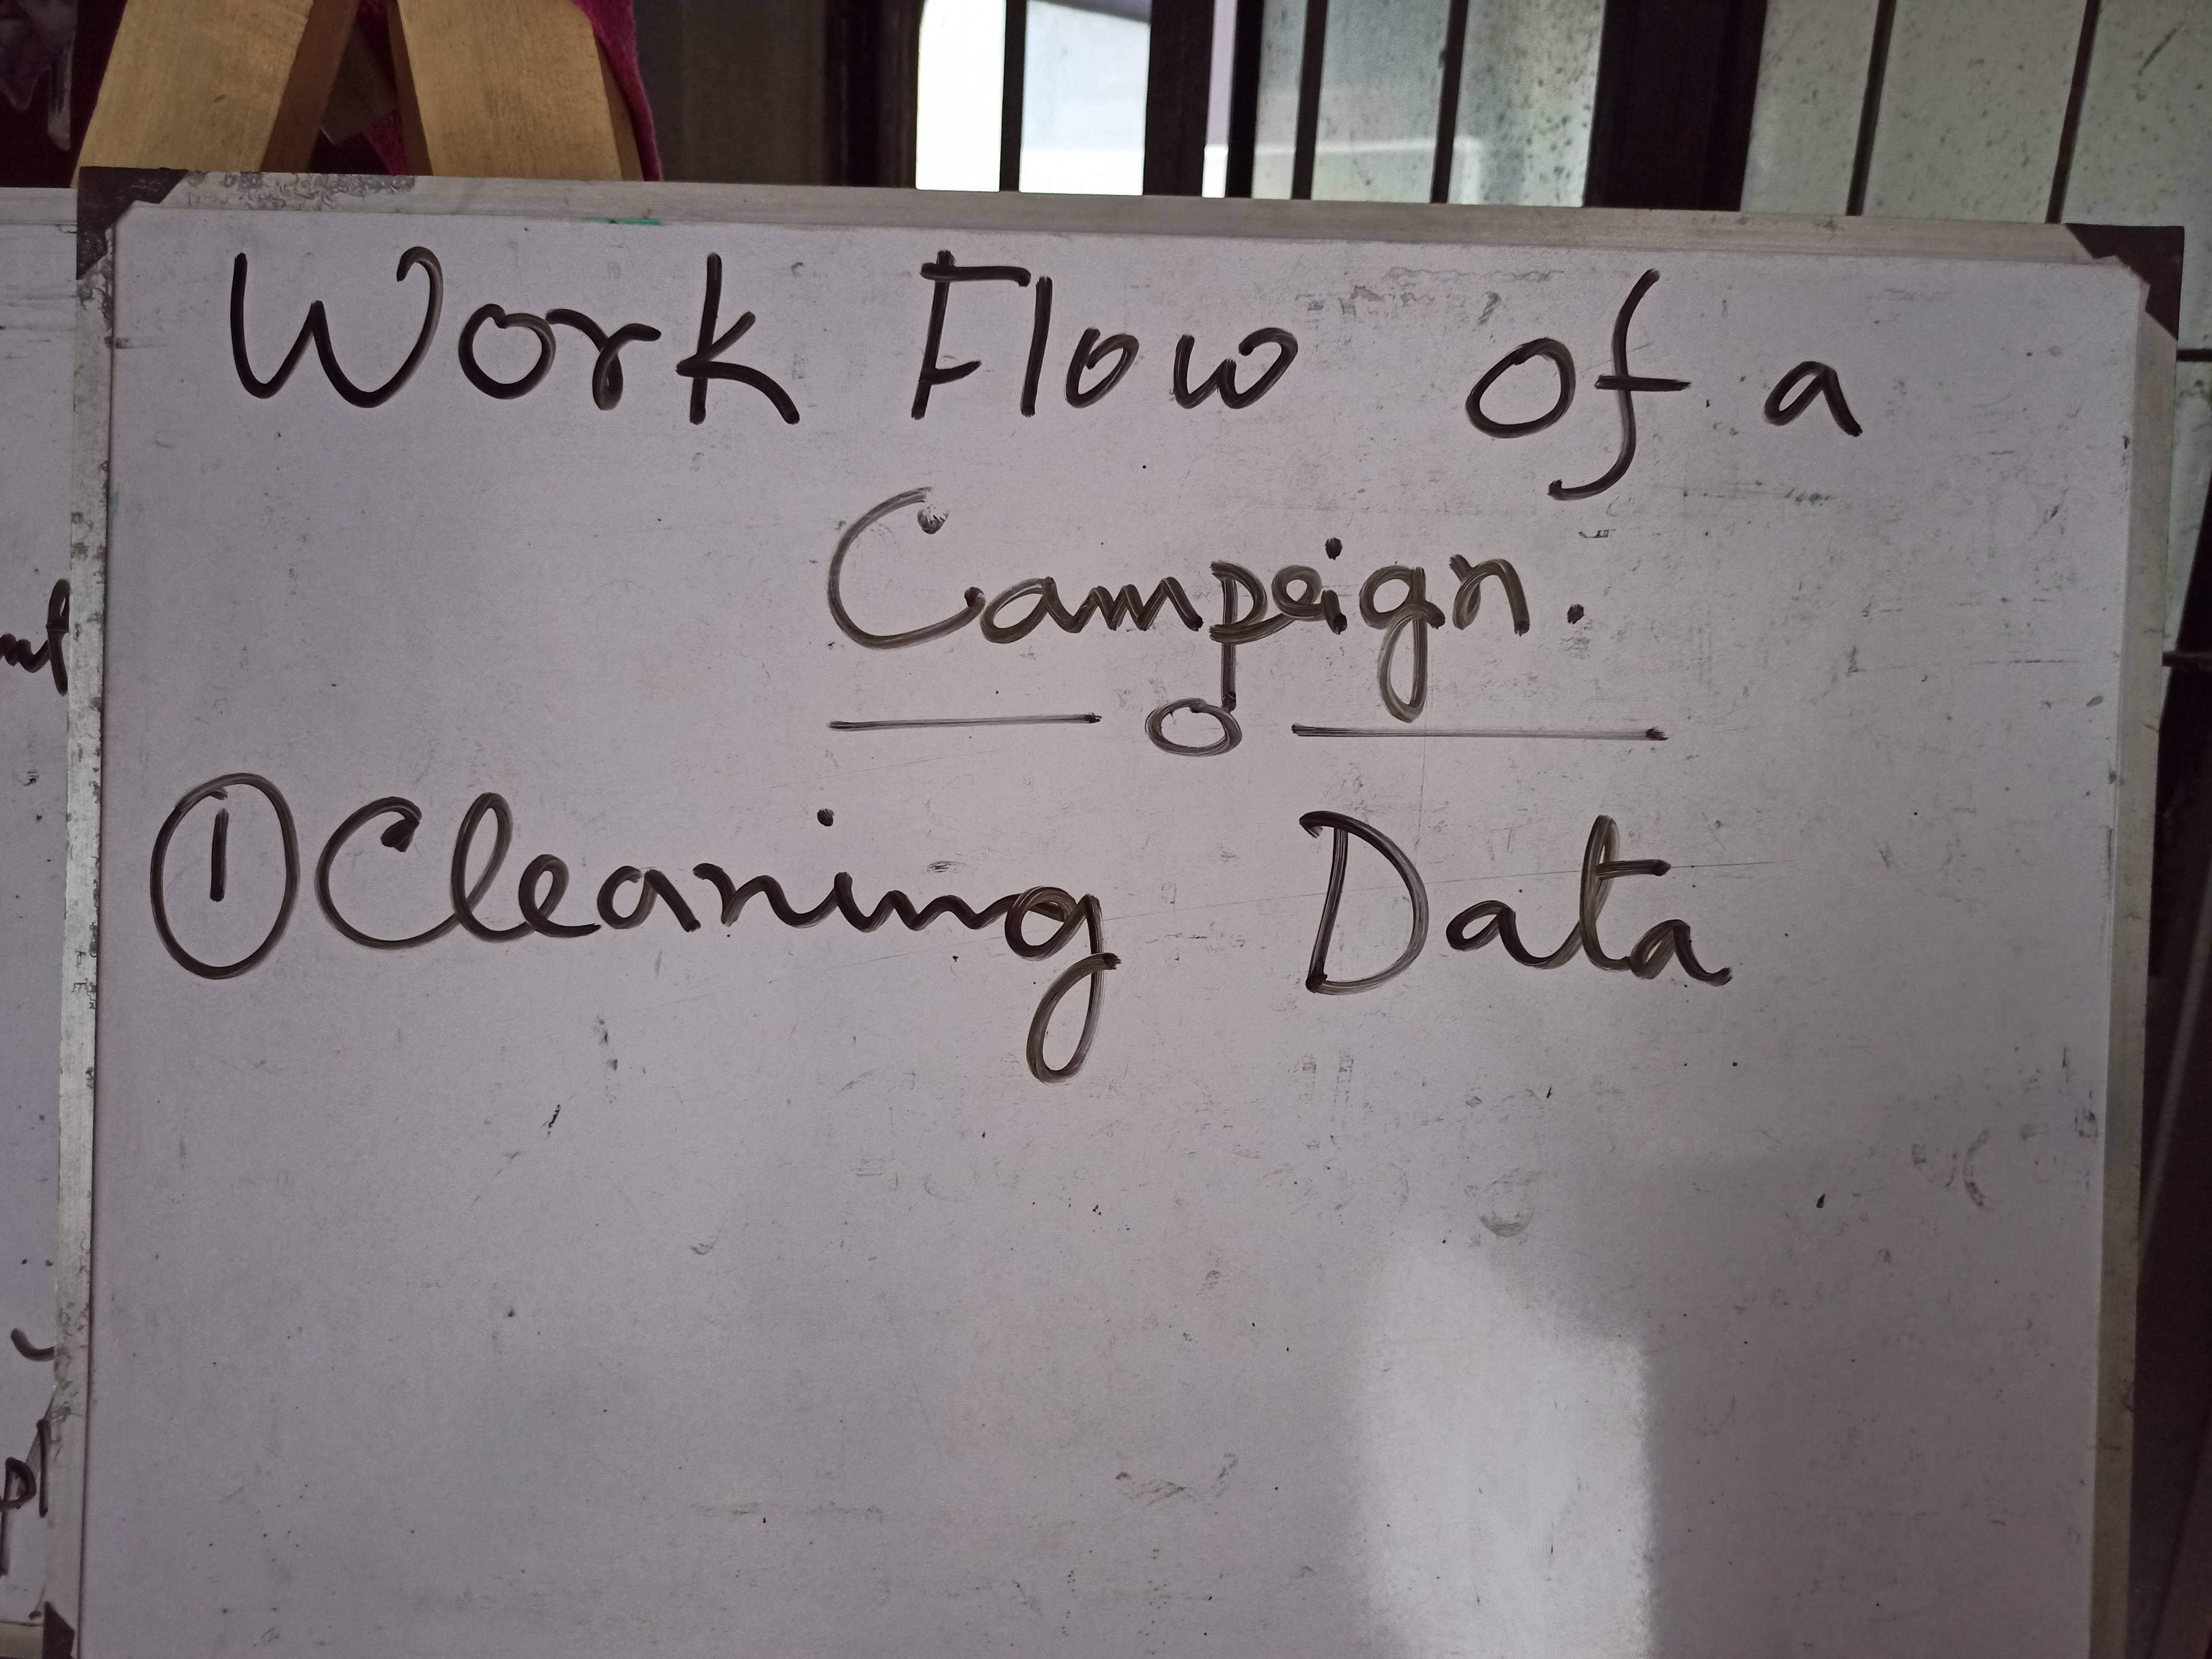 Work Flow of a
Campaign.
① Cleaning Data